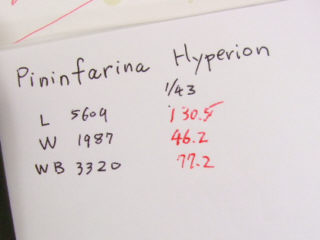 Pininfarina Hyperion
1/43
L 5609 130.5
W 1987 46.2
WB 3320 77.2